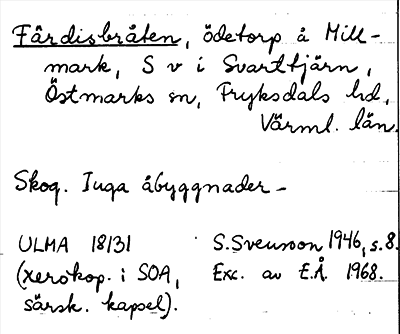 Färdisbråten, ödetorp å Mill-
mark, S v i Svarttjärn,
Östmarks sn, Fryksdals hd,
Värml. län.
Skog. Inga åbyggnader -
ULMA 18131 S. Svensson 1946, s. 8.
(xerokop. i SOA, Exc. av E.Å. 1968.
särsk. kapsel).